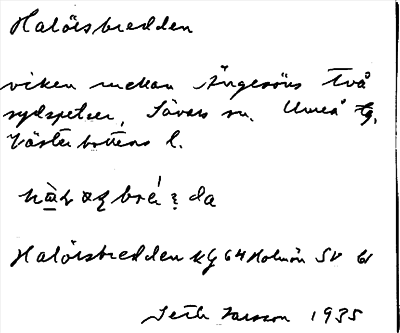 Halörsbredden
viken mellan Ängesöns två
sydspetsar, Sävars sn. Umeå tg.
Västerbottens l.
Halörsbredden kg 64 Holmön SV
Seth Larsson 1935